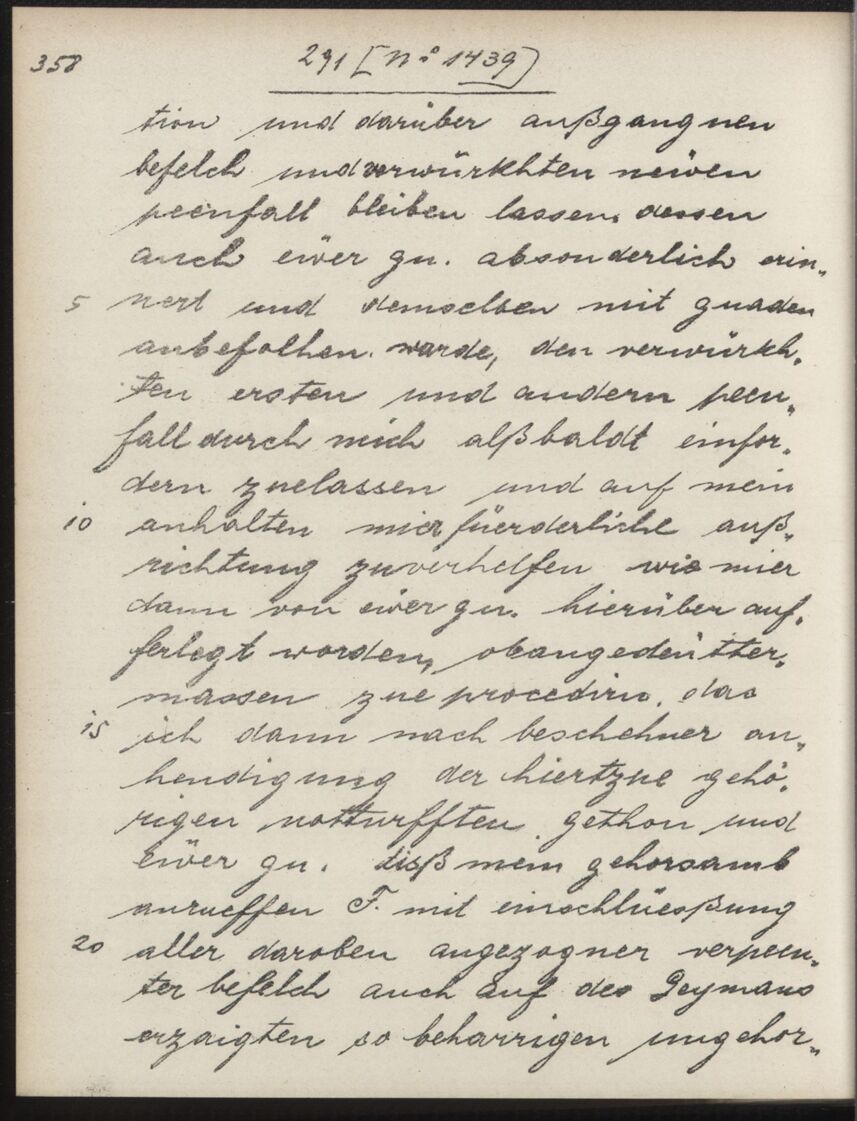 358 291 [N° 1439]
tion und darüber außgangnen
befelch und verwürkhten neüen
peenfall bleiben lassen, dessen
auch eüer gn. absonderlich erin„
5 nert und demselben mit gnaden
anbefolhen warde, den verwürkh„
ten ersten und andern peen„
fall durch mich alßbaldt einfor„
dern zuelassen und auf mein
10 anhalten mier füerderliche auß„
richtung zuverhelfen wie mier
dann von eüer gn. hierüber auf„
ferlegt worden, obangedeütter„
massen zue procedirn. das
15 ich dann nach beschehner an„
hendigung der hiertzue gehö„
rigen notturfften gethon und
eüer gn. diß mein gehorsamb
anrueffen F. mit einschlüeßung
20 aller daroben angezogner verpeen„
ter befelch auch auf des Geymans
erzaigten so beharrigen ungehor„